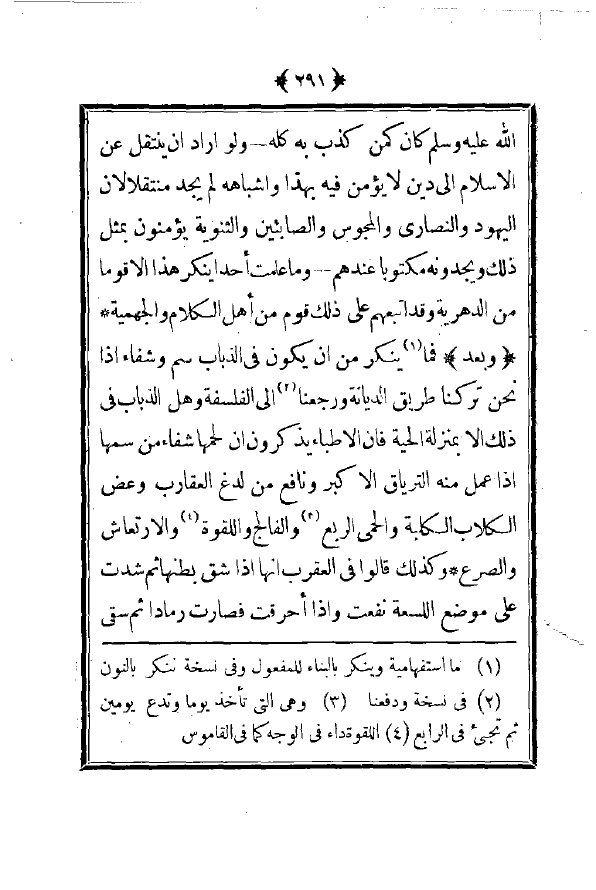 ﴿ ٢٩١ ﴾
الله عليه وسلم كان كمن كذب به كله – ولو اراد ان ينتقل عن
الاسلام الى دين لا يؤمن فيه بهذا واشباهه لم يجد منتقلا لان
اليهود والنصارى والمجوس والصابئين والثنوية يؤمنون بمثل
ذلك ويجدونه مكتوبا عندهم – وما علمت أحدا ينكر هذا الا قوما
من الدهرية وقد اتبعهم على ذلك قوم من أهل الكلام والجهمية *
﴿ وبعد ﴾ فما (١) ينكر من ان يكون فى الذباب سم وشفاء اذا
نحن تركنا طريق الديانة ورجعنا (٢) الى الفلسفة وهل الذباب فى
ذلك الا بمنزلة الحية فان الاطباء يذكرون ان لحمها شفاء من سمها
اذا عمل منه الترياق الاكبر ونافع من لدغ العقارب وعض
الكلاب الكلبة والحمى الربع (٣) والفالج واللقوة (٤) والارتعاش
والصرع * وكذلك قالوا فى العقرب انها اذا شق بطنها ثم شدت
على موضع اللسعة نفعت واذا أحرقت فصارت رمادا ثم سقى
(١) ما استفهامية وينكر بالبناء للمفعول وفى نسخة ننكر بالنون
(٢) فى نسخة ودفعنا (٣) وهى التى تأخذ يوما وتدع يومين
ثم تجىء فى الرابع (٤) اللقوة داء فى الوجه كما فى القاموس